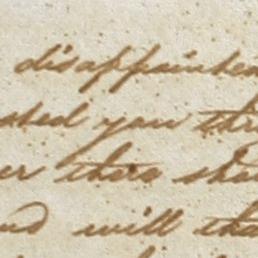 disappointed
ated you thr
er there sha
nd will tha